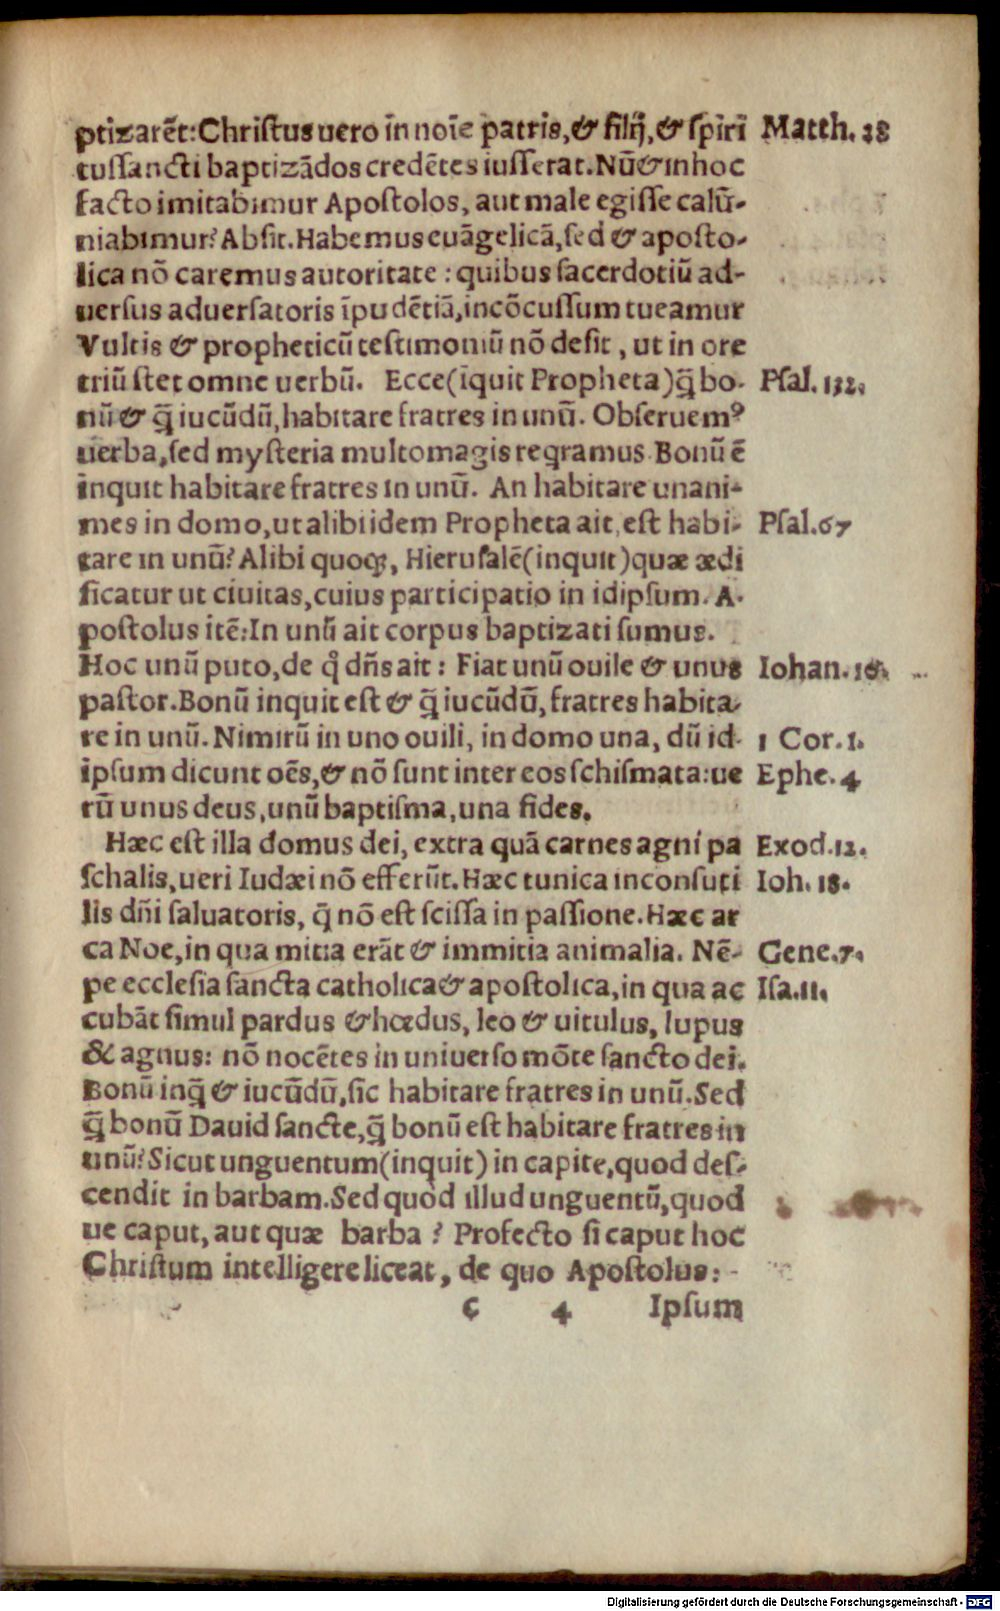 ptizarēt:Christus uero in noīe patris,& filij,& spiri Matth. 28
tussancti baptizādos credētes iusserat.Nū & in hoc
facto imitabimur Apostolos, aut male egisse calū-
niabimur? Absit. Habemus euāgelicā, sed & aposto-
lica nō caremus autoritate : quibus sacerdotiū ad-
uersus aduersatoris īpudētiā, incōcussum tueamur
Vultis & propheticū testimoniū nō desit, ut in ore
triū stet omne uerbū. Ecce (īquit Propheta) q̄ bo- Psal. 132.
nū & q̄ iucūdū, habitare fratres in unū. Obseruemꝰ
uerba, sed mysteria multomagis reqramus. Bonū ē
inquit habitare fratres in unū. An habitare unani-
mes in domo, ut alibi idem Propheta ait, est habi- Psal.67
tare in unū? Alibi quoqꝫ, Hierusalē (inquit) quæ ædi
ficatur ut ciuitas, cuius participatio in idipsum. A-
postolus itē: In unū ait corpus baptizati sumus.
Hoc unū puto, de q̊ dñs ait : Fiat unū ouile & unus Iohan. 10.
pastor. Bonū inquit est & q̄ iucūdū, fratres habita-
re in unū. Nimirū in uno ouili, in domo una, dū id- 1 Cor. 1.
ipsum dicunt oēs, & nō sunt inter eos schismata: ue Ephe. 4
rū unus deus, unū baptisma, una fides.
Hæc est illa domus dei, extra quā carnes agni pa Exod.12.
schalis, ueri Iudæi nō efferūt. Hæc tunica inconsuti Ioh. 18.
lis dñi saluatoris, q̄ nō est scissa in passione. Hæc ar
ca Noe, in qua mitia erāt & immitia animalia. Nē- Gene.7.
pe ecclesia sancta catholica & apostolica, in qua ac Isa.11.
cubāt simul pardus & hœdus, leo & uitulus, lupus
& agnus: nō nocētes in uniuerso mōte sancto dei.
Bonū inq̄ & iucūdū, sic habitare fratres in unū. Sed
q̄ bonū Dauid sancte, q̄ bonū est habitare fratres in
unū? Sicut unguentum (inquit) in capite, quod des-
cendit in barbam. Sed quod illud unguentū, quod
ue caput, aut quæ barba ? Profecto si caput hoc
Christum intelligere liceat, de quo Apostolus: -
c 4 Ipsum
Digitalisierung gefördert durch die Deutsche Forschungsgemeinschaft - DFG